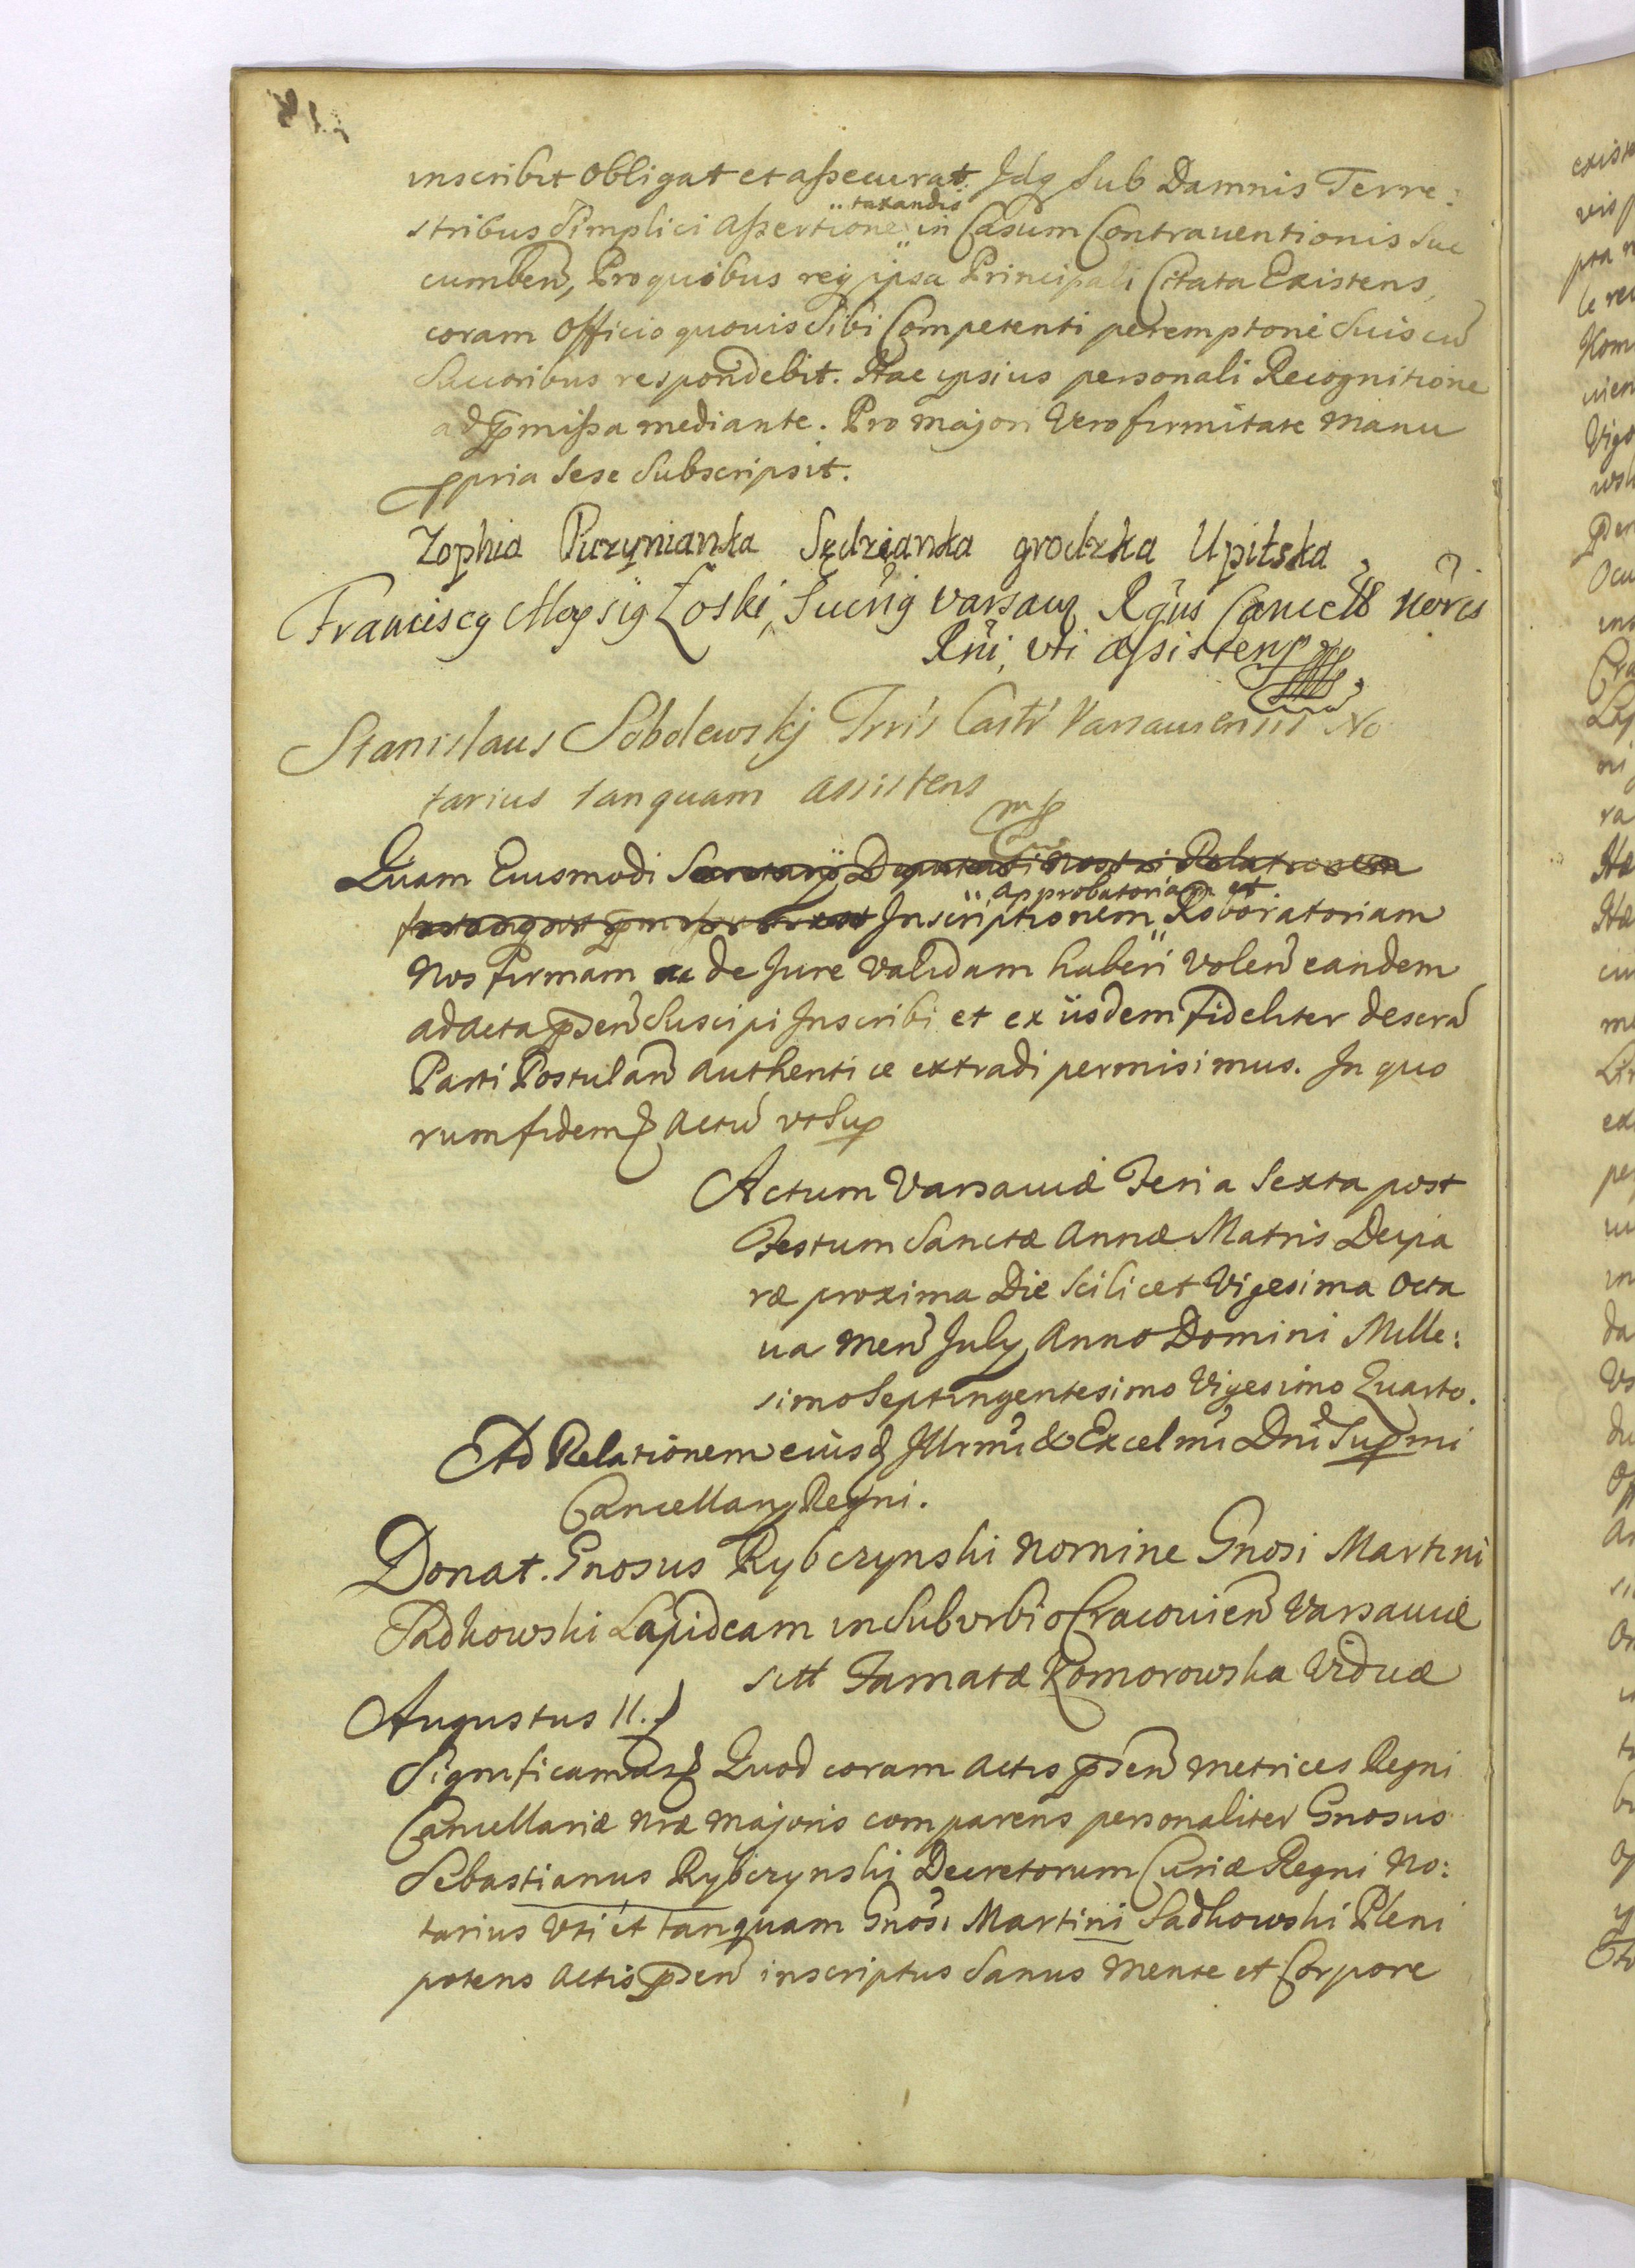 inscribit obligat et assecurat. Idq sub Damnis Terre:
stribus simplici Assertione "taxandis" in Casum Contrauentionis suc
cumbeñ, Pro quibus reiq ipsa Principali Citata Existens,
coram Officio quouis sibi Competenti peremptoriè suis cū
Succoribus respondebit. Hac ipsius personali Recognitione
ad p̄missa mediante. Pro majori Vero firmitate manu
ppria sese subscripsit.
Zophia Puzynianka Sędzianka grodzka Upitska
Franciscq Aloysiq Zoski, Sucrig varsauq Rgūs Cancell
Rñi, vti assistens
Stanislaus Sobolewskj Trris Castr Varsauiensis No
tarius tanquam assistens
mp
Quam Eiusmodi Secretarij Deputati nostri Relationem
Inscriptionem "Approbatoriam et" Roboratoriam
Nos firmam ac de Jure validam haberi Voleñ eandem
ad Acta p̄señ suscipi Inscribi et ex iisdem fideliter descrā
Parti Postulañ authentice extradi permisimus. In quo
rum fidem Actū vt sup
Actum Varsauiæ Feria Sexta post
Festum Sanctæ Annæ Matris Deipa
ræ proxima Die scilicet Vigesima Octa
ua Meñ July Anno Domini Mille:
simo Septingentesimo Vigesimo Quarto.
Ad Relationem eiusd Illrmi & Excelmi Dni Supmi
Cancellarij Regni.
Donat. Gnosus Rybczynski nomine Gnosi Martini
Sadkowski Lapideam in Suburbio Cracouieñ Varsauiæ
sitt Famatæ Komorowska Viduæ
Augustus II.
Significamus Quod coram Actis p̄señ Metrices Regni
Cancellariæ nræ majoris comparens personaliter Gnosus
Sebastianus Rybczynski Decretorum Curiæ Regni No:
tarius vti et tanquam Gnosi Martini Sadkowski Pleni
potens Actis p̄señ inscriptus Sanus Mente et Corpore